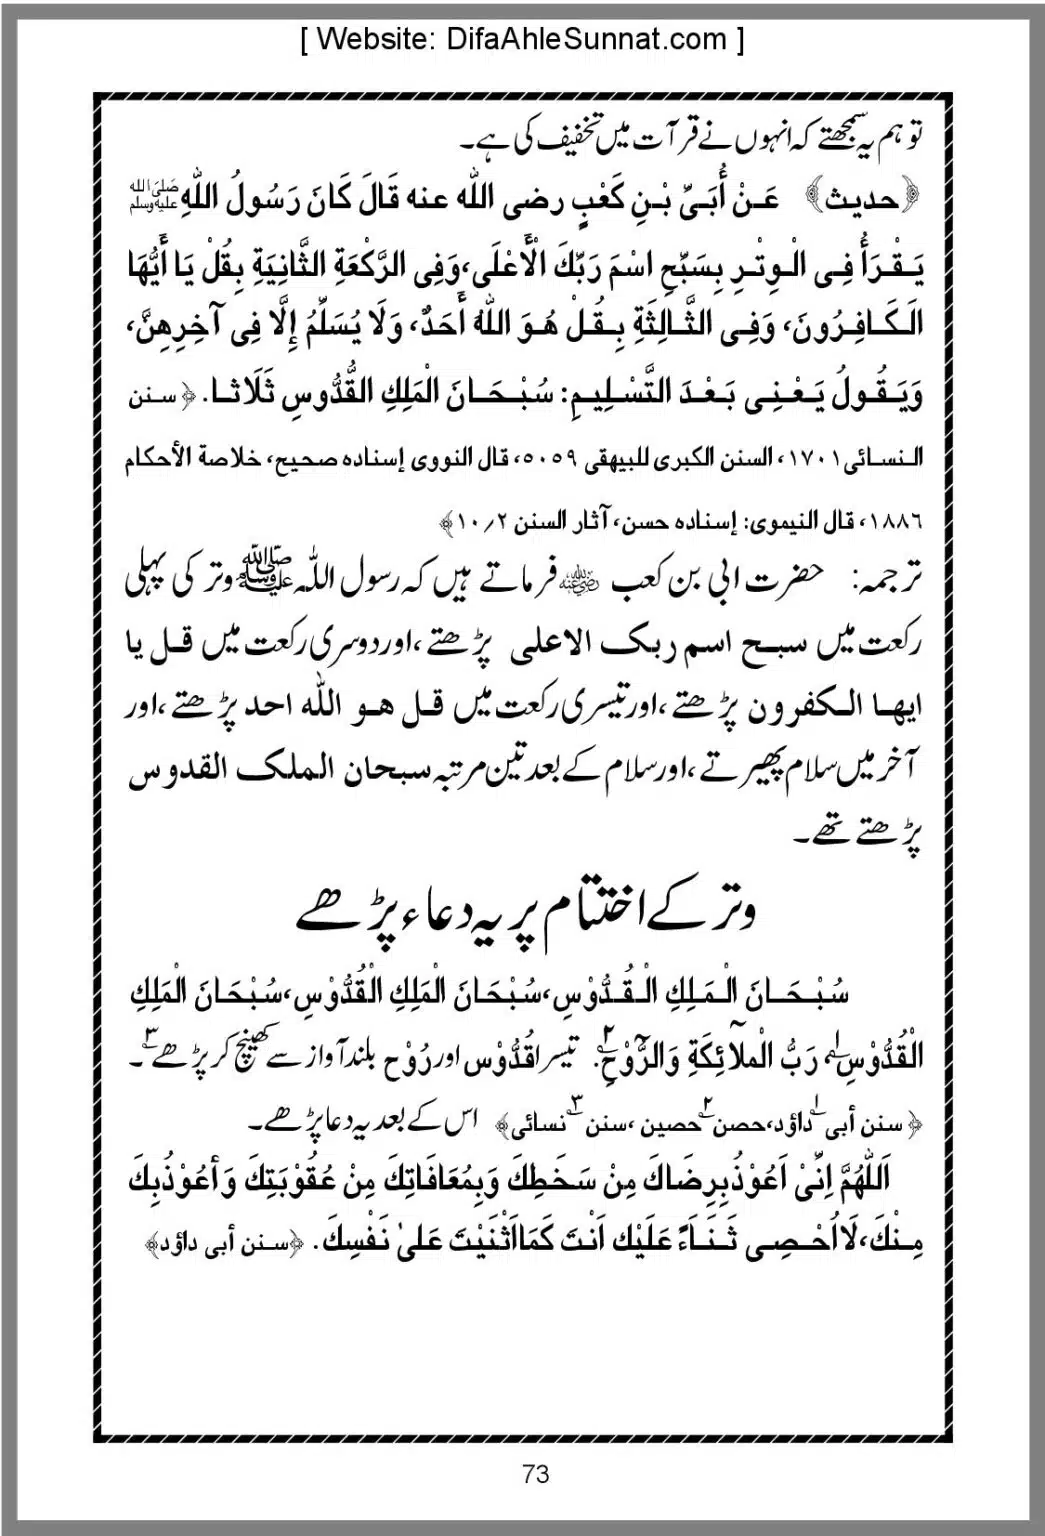 [ Website: DifaAhleSunnat.com ]
تو ہم یہ سمجھتے کہ انہوں نے قرآت میں تخفیف کی ہے۔
﴿حدیث﴾ عَنْ أُبَيِّ بْنِ كَعْبٍ رضی اللّٰہ عنہ قَالَ كَانَ رَسُولُ اللّٰهِ ﷺ
يَقْرَأُ فِي الْوِتْرِ بِسَبِّحِ اسْمَ رَبِّكَ الْأَعْلَى، وَفِي الرَّكْعَةِ الثَّانِيَةِ بِقُلْ يَا أَيُّهَا
الْكَافِرُونَ، وَفِي الثَّالِثَةِ بِقُلْ هُوَ اللّٰهُ أَحَدٌ، وَلَا يُسَلِّمُ إِلَّا فِي آخِرِهِنَّ،
وَيَقُولُ يَعْنِي بَعْدَ التَّسْلِيمِ: سُبْحَانَ الْمَلِكِ الْقُدُّوسِ ثَلَاثًا. ﴿سنن
النسائی ۱۷۰۱، السنن الکبری للبیهقی ۵۰۵۹، قال النووی إسناده صحيح، خلاصة الأحكام
۱۸۸٦، قال النیموی: إسناده حسن، آثار السنن ۱۰/۲﴾
ترجمہ: حضرت ابی بن کعب رضی اللہ عنہ فرماتے ہیں کہ رسول اللہ ﷺ وتر کی پہلی
رکعت میں سبح اسم ربک الاعلی پڑھتے، اور دوسری رکعت میں قل یا
ایھا الکفرون پڑھتے، اور تیسری رکعت میں قل ھو اللّٰہ احد پڑھتے، اور
آخر میں سلام پھیرتے، اور سلام کے بعد تین مرتبہ سبحان الملک القدوس
پڑھتے تھے۔
وتر کے اختتام پر یہ دعاء پڑھے
سُبْحَانَ الْمَلِكِ الْقُدُّوْسِ، سُبْحَانَ الْمَلِكِ الْقُدُّوْسِ، سُبْحَانَ الْمَلِكِ
الْقُدُّوْسِ۱، رَبُّ الْمَلآئِكَةِ وَالرُّوْحِ۲. تیسرا قُدُّوْس اور رُوْح بلند آواز سے کھینچ کر پڑھے۳۔
﴿سنن أبی داؤد۱، حصن حصین۲، سنن نسائی۳﴾ اس کے بعد یہ دعا پڑھے۔
اَللّٰهُمَّ اِنِّیْ اَعُوْذُ بِرِضَاكَ مِنْ سَخَطِكَ وَبِمُعَافَاتِكَ مِنْ عُقُوْبَتِكَ وَأَعُوْذُ بِكَ
مِنْكَ، لَا اُحْصِی ثَنَاءً عَلَيْكَ اَنْتَ كَمَا اَثْنَيْتَ عَلیٰ نَفْسِكَ. ﴿سنن أبی داؤد﴾
73